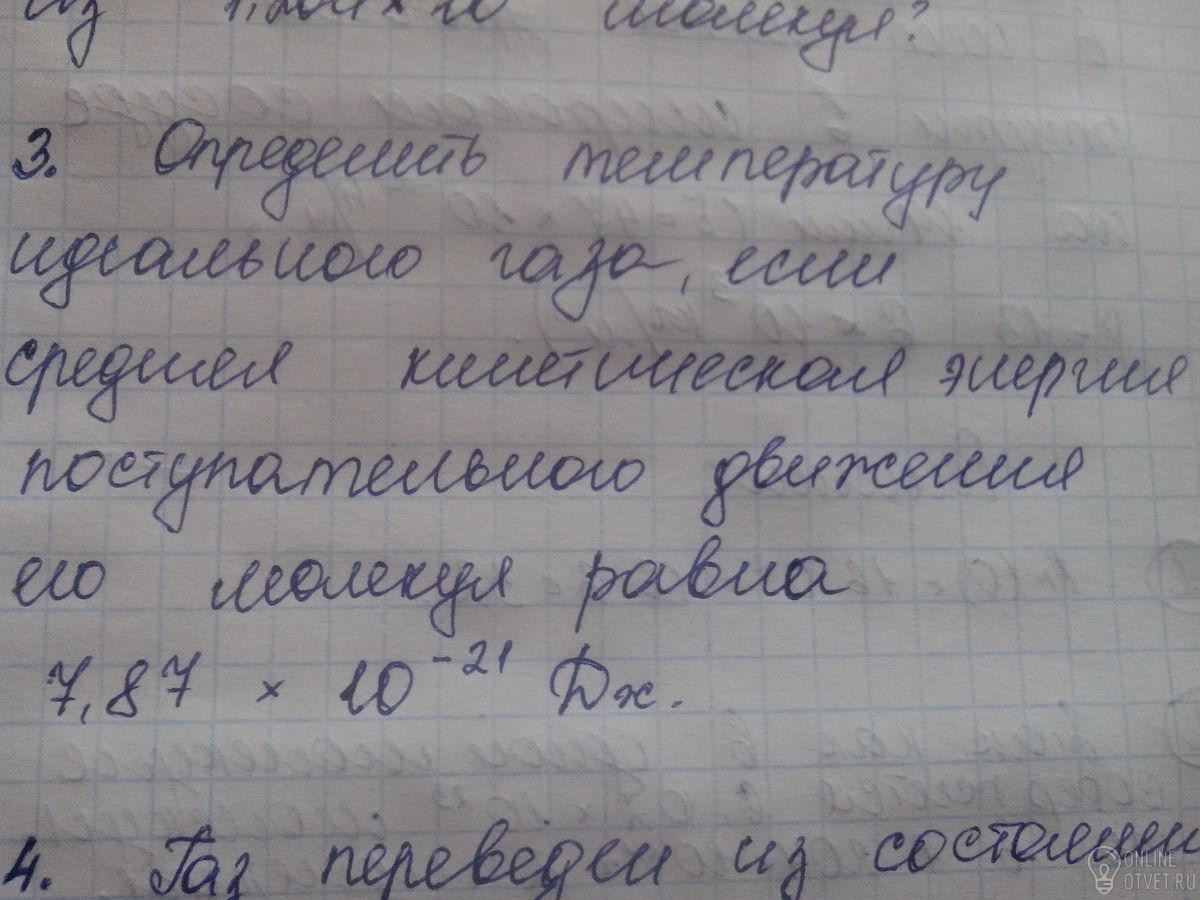 из 1,204 × 10 молекул?
3. Определить температуру
идеального газа, если
средняя кинетическая энергия
поступательного движения
его молекул равна
7,87 × 10⁻²¹ Дж.
4. Газ переведен из состояния
ONLINE
OTVET.RU